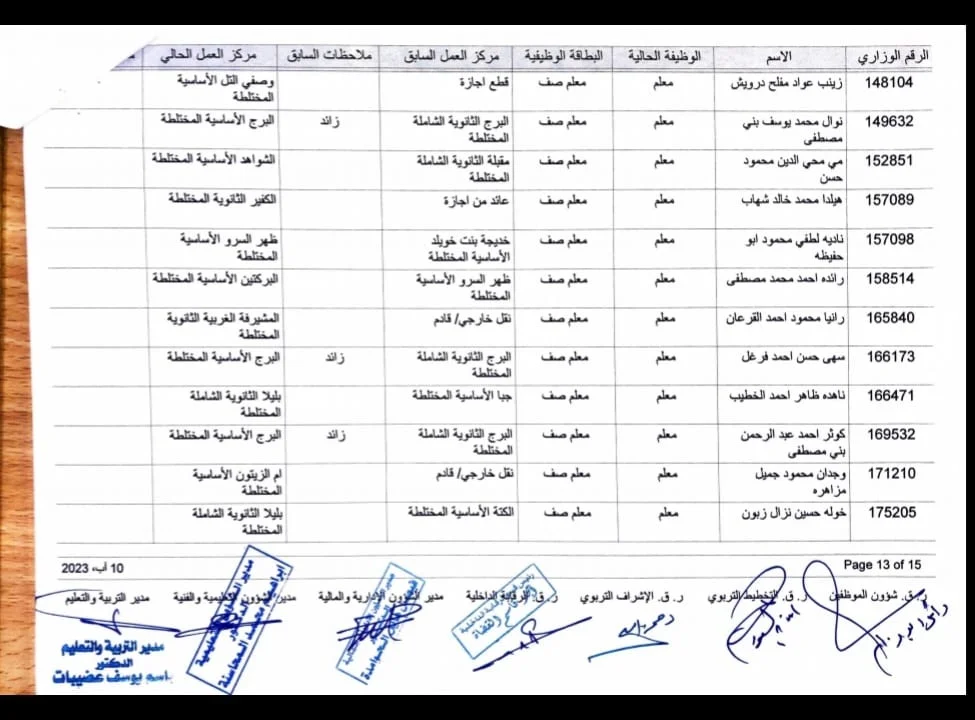 الرقم الوزاري الاسم الوظيفة الحالية البطاقة الوظيفية مركز العمل السابق ملاحظات السابق مركز العمل الحالي
148104 زينب عواد مفلح درويش معلم معلم صف قطع اجازة وصفي التل الأساسية
المختلطة
149632 نوال محمد يوسف بني معلم معلم صف البرج الثانوية الشاملة زائد البرج الأساسية المختلطة
مصطفى المختلطة
152851 مي محي الدين محمود معلم معلم صف مقبلة الثانوية الشاملة الشواهد الأساسية المختلطة
حسن المختلطة
157089 هيلدا محمد خالد شهاب معلم معلم صف عائد من اجازة الكفير الثانوية المختلطة
157098 ناديه لطفي محمود ابو معلم معلم صف خديجة بنت خويلد ظهر السرو الأساسية
حفيظه الأساسية المختلطة المختلطة
158514 رائده احمد محمد مصطفى معلم معلم صف ظهر السرو الأساسية البركتين الأساسية المختلطة
المختلطة
165840 رانيا محمود احمد القرعان معلم معلم صف نقل خارجي/ قادم المشيرفة الغربية الثانوية
المختلطة
166173 سهى حسن احمد فرغل معلم معلم صف البرج الثانوية الشاملة زائد البرج الأساسية المختلطة
المختلطة
166471 ناهده ظاهر احمد الخطيب معلم معلم صف جبا الأساسية المختلطة بليلا الثانوية الشاملة
المختلطة
169532 كوثر احمد عبد الرحمن معلم معلم صف البرج الثانوية الشاملة زائد البرج الأساسية المختلطة
بني مصطفى المختلطة
171210 وجدان محمود جميل معلم معلم صف نقل خارجي/ قادم ام الزيتون الأساسية
مزاهره المختلطة
175205 خوله حسين نزال زبون معلم معلم صف الكتة الأساسية المختلطة بليلا الثانوية الشاملة
المختلطة
Page 13 of 15 10 آب، 2023
ر. ق. شؤون الموظفين ر. ق. التخطيط التربوي ر. ق. الإشراف التربوي ر. ق. الرقابة الداخلية مدير الشؤون الإدارية والمالية مدير الشؤون التعليمية والفنية مدير التربية والتعليم
مدير التربية والتعليم
الدكتور
باسم يوسف عضيبات